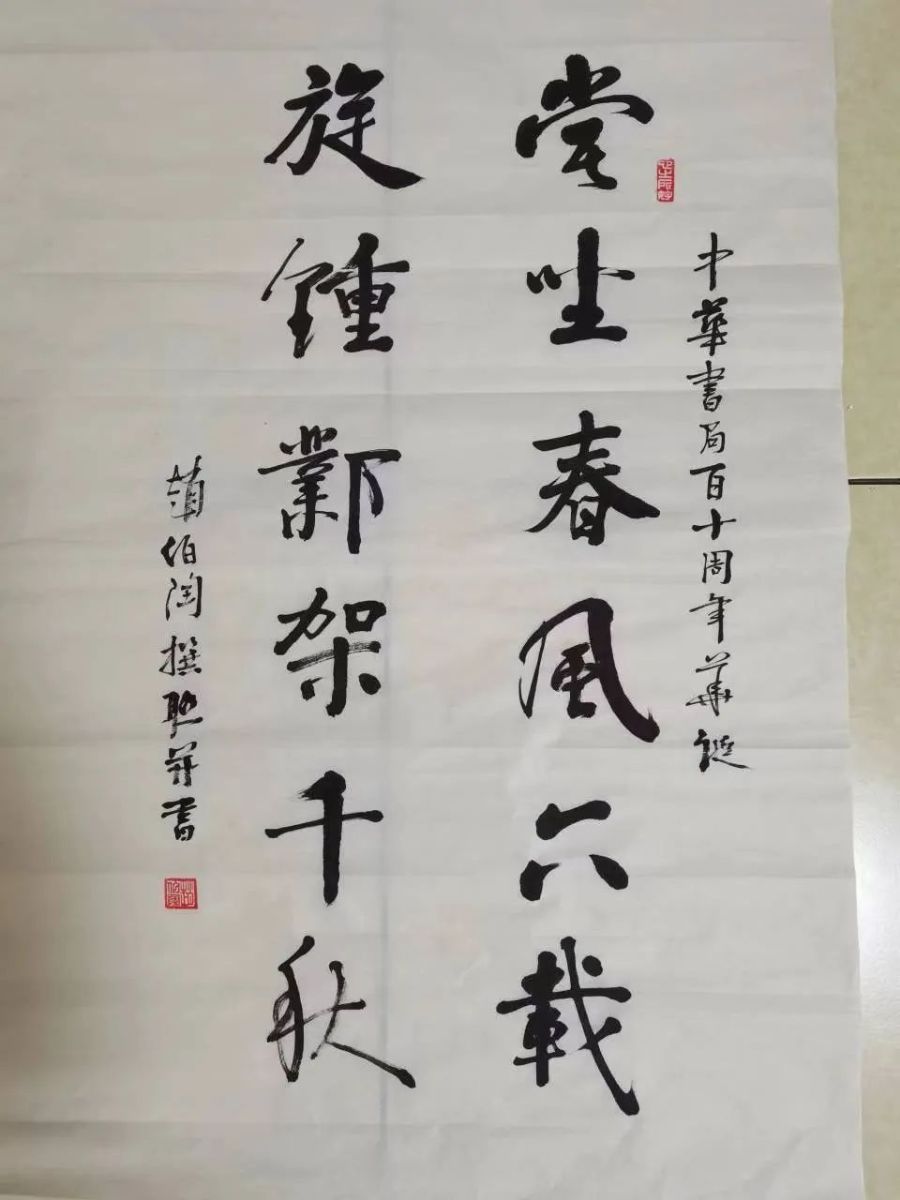 中華書局百十周年華誕
嘗坐春風六載
旋鍾鄴架千秋
趙伯陶撰聯并書